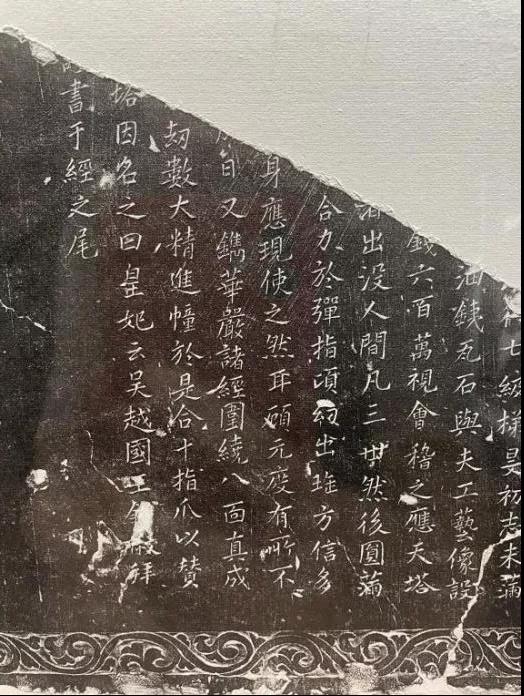 七級梯旻初志未滿
油錢瓦石與夫工藝像設
錢六百萬視會稽之應天塔
者出没人間凡三世然後圓滿
合力於彈指頃幻出珤方信多
身應現使之然耳顧元度有所不
日又鐫華嚴諸經圍繞八面真成
劫數大精進幢於是合十指爪以贊
塔因名之曰皇妃云吳越國王錢俶拜
書于經之尾